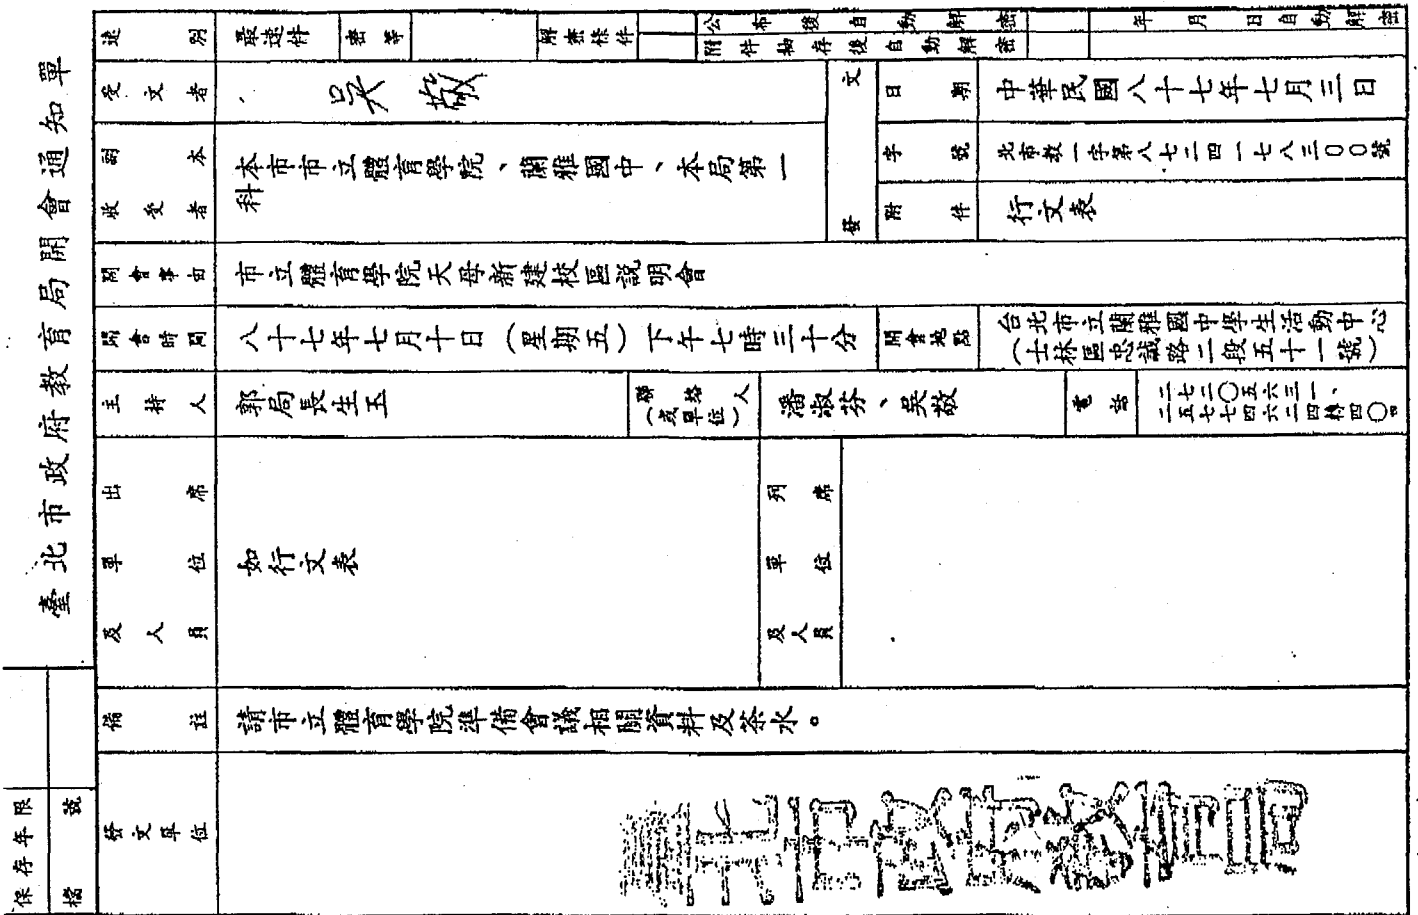 臺北市政府教育局開會通知單
保存年限
檔號
速別
最速件
密等
解密條件
公布後自動解密
附件抽存後自動解密
年月日自動解密
受文者
吳敬
副本收受者
本市市立體育學院、蘭雅國中、本局第一
科
發文
日期
中華民國八十七年七月三日
字號
北市教一字第八七二四一七八三〇〇號
附件
行文表
開會事由
市立體育學院天母新建校區説明會
開會時間
八十七年七月十日（星期五）下午七時三十分
開會地點
台北市立蘭雅國中學生活動中心
（士林區忠誠路二段五十一號）
主持人
郭局長生玉
聯絡人
（或單位）
潘淑芬、吳敬
電話
二七二〇五六三一、
二五七七四六二四轉四〇四
出席單位及人員
如行文表
列席單位及人員
備註
請市立體育學院準備會議相關資料及茶水。
發文單位